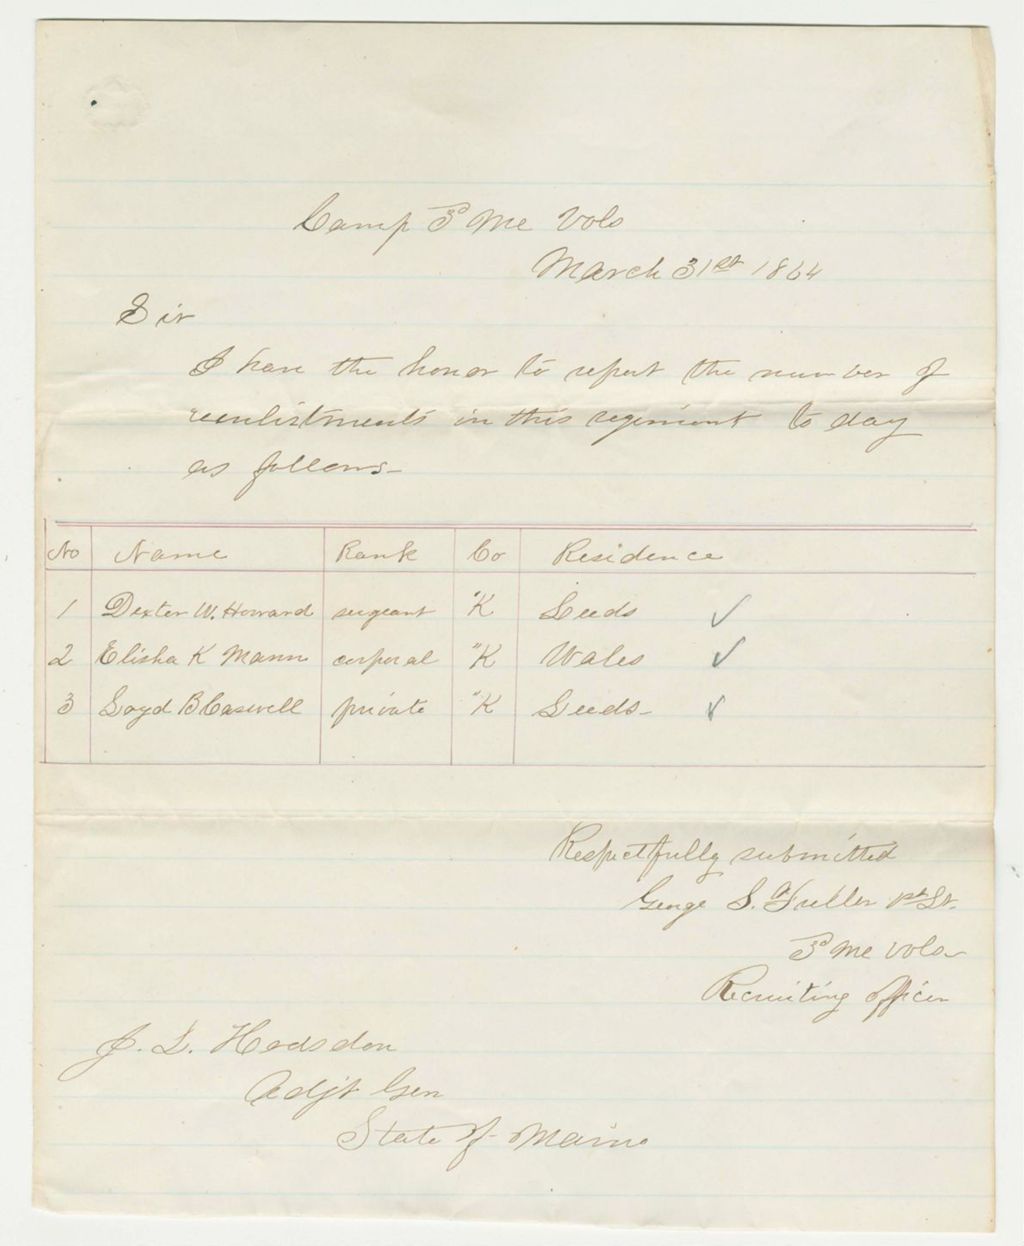 Camp 3d Me Vols
March 31st 1864
Sir
I have the honor to report the number of
reenlistments in this regiment to day
as follows-
No Name Rank Co Residence
1 Dexter W. Howard sergeant "K Leeds ✓
2 Elisha K Mann corporal "K Wales ✓
3 Loyd B Caswell private "K Leeds- ✓
Respectfully submitted
George S. Fuller 1st Lt.
3d Me Vols
Recruiting officer
J. L. Hodsdon
Adjt Gen
State of Maine